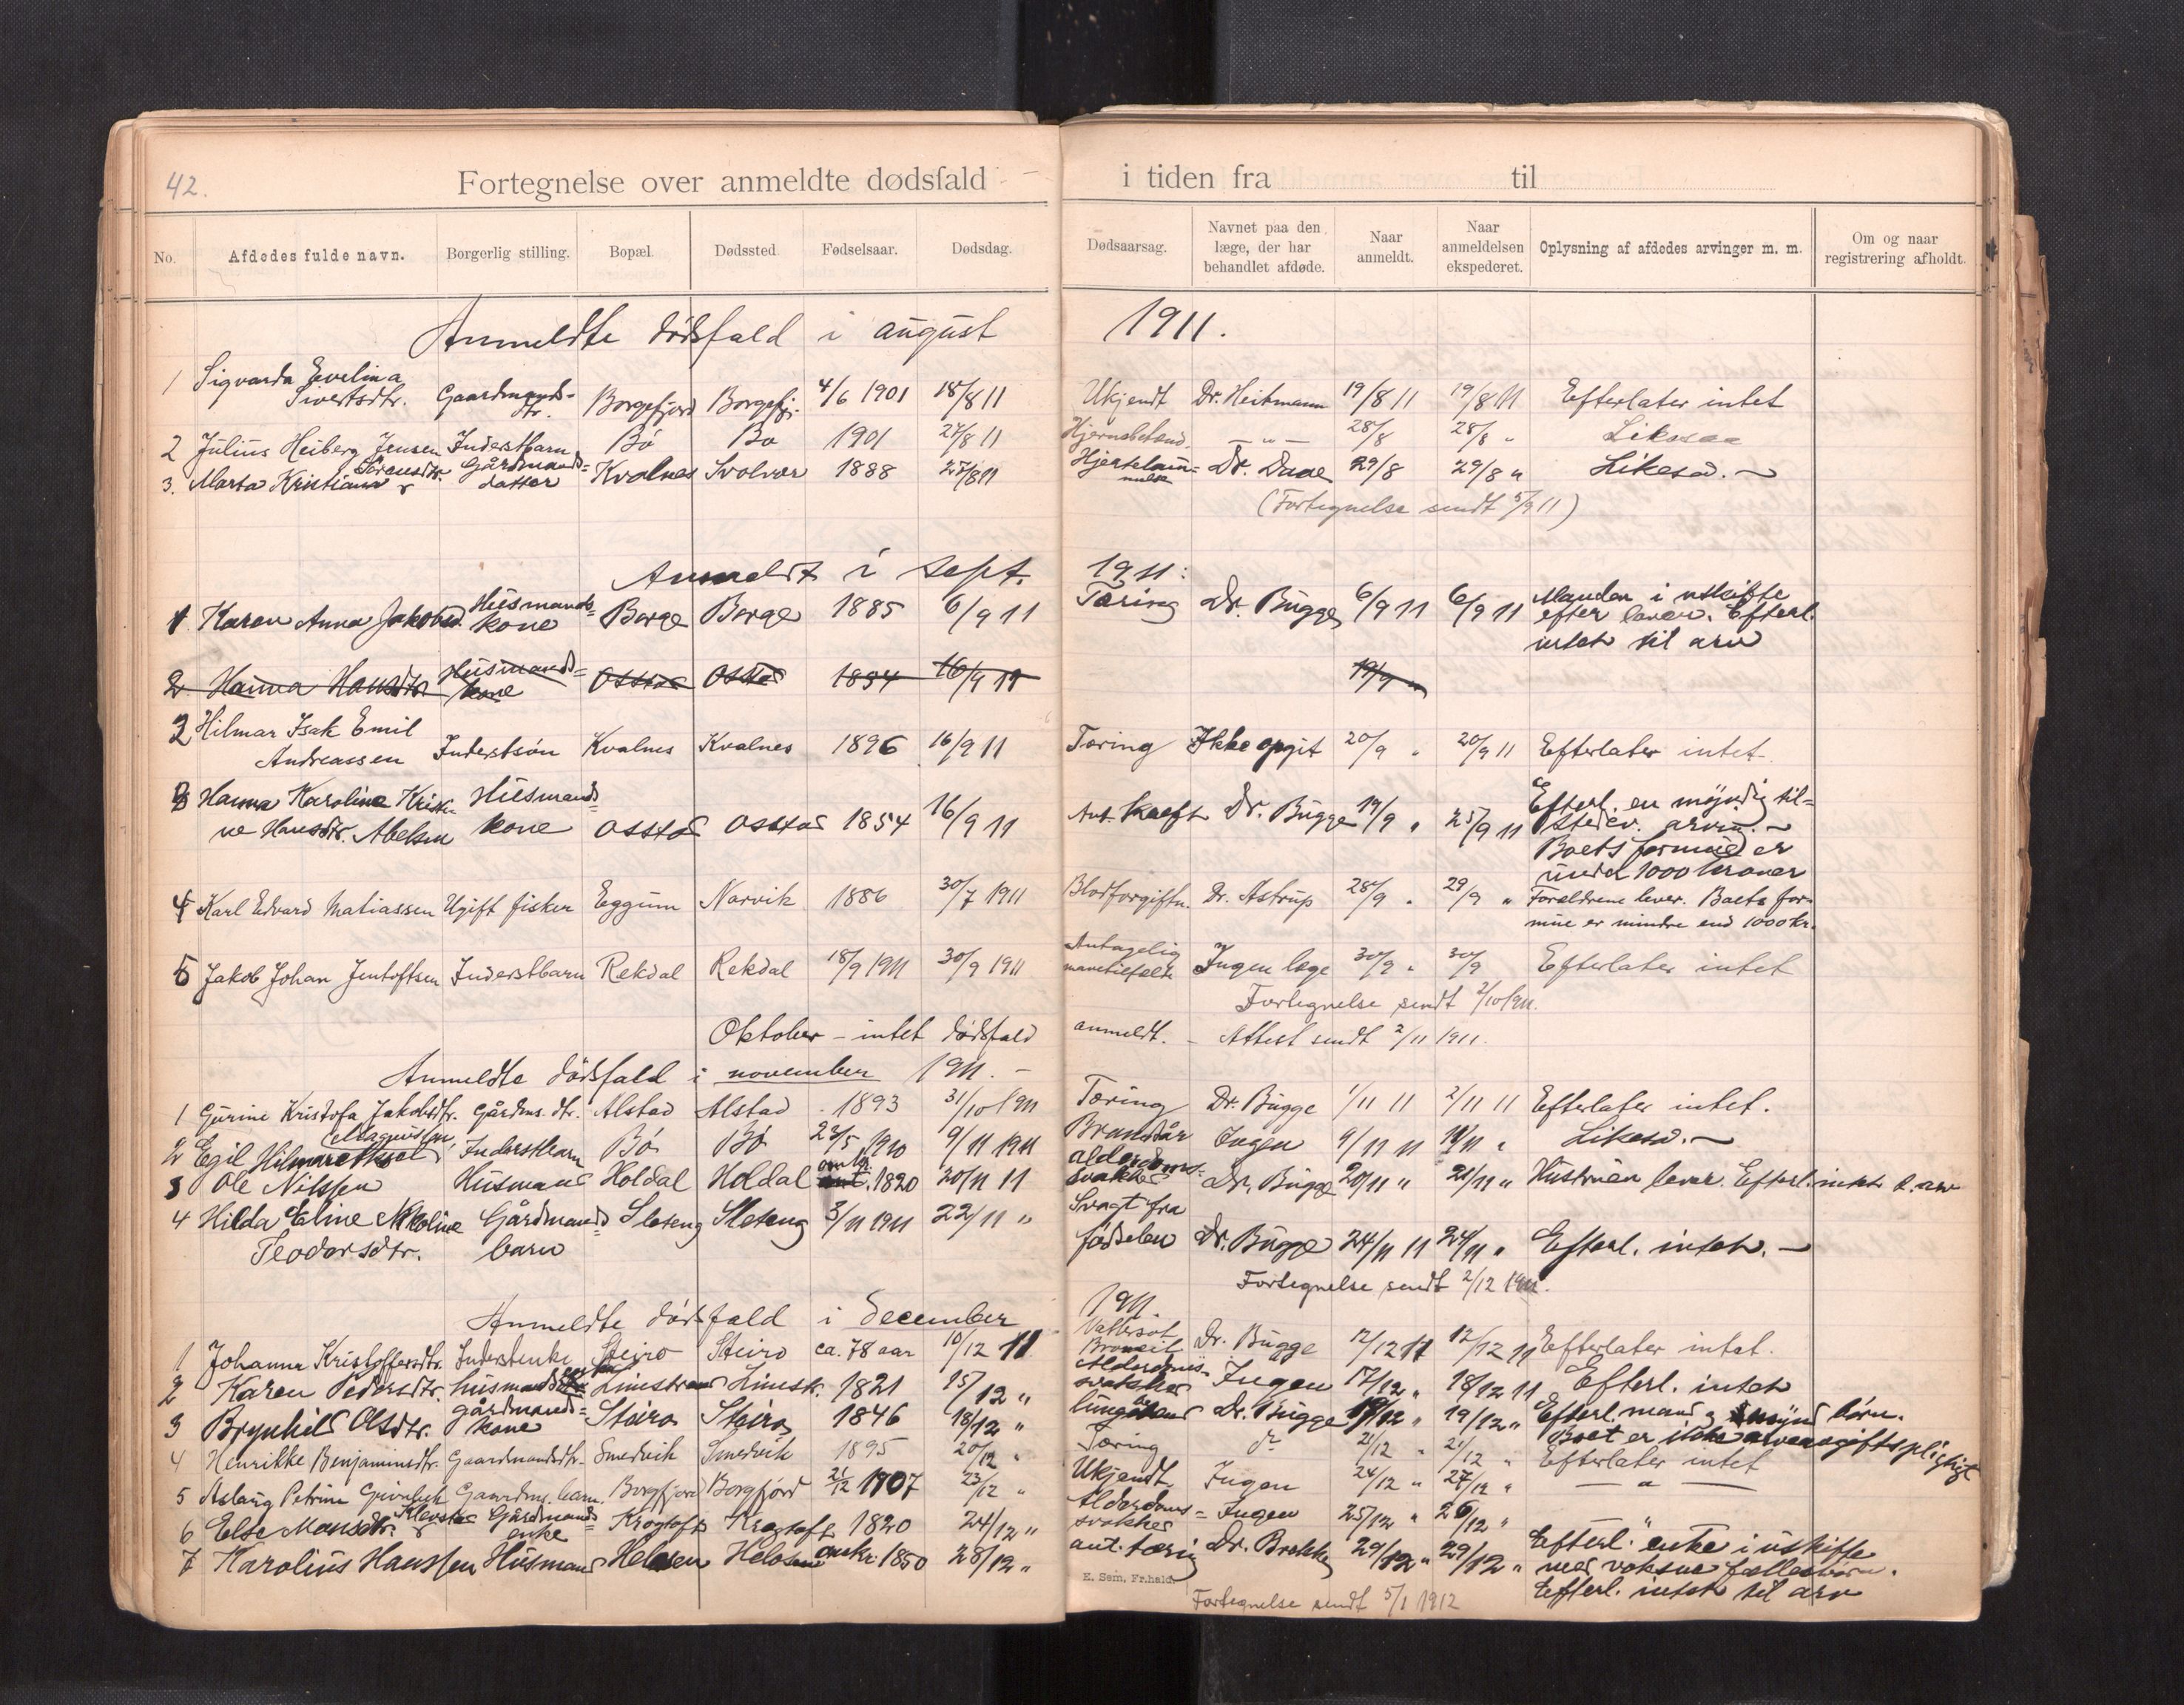 42.
Fortegnelse over anmeldte dødsfald i tiden fra til
No. Afdødes fulde navn. Borgerlig stilling. Bopæl. Dødssted. Fødselsaar. Dødsdag. Dødsaarsag. Navnet paa den læge, der har behandlet afdøde. Naar anmeldt. Naar anmeldelsen ekspederet. Oplysning af afdødes arvinger m. m. Om og naar registrering afholdt.
Anmeldte dødsfald i august 1911.
1 Sigvarda Evelina
Sivertsdtr. Gaardmands-dtr. Borgefjord Borgefj. 4/6 1901 18/8 11 Ukjendt Dr. Heitmann 19/8 11 19/8 11 Efterlater intet
2 Julius Heiberg Jensen Inderstbarn Bö Bö 1901 27/8 11 Hjernebetænd. - " - 28/8 28/8 "
3. Marta Kristiane Sörensdtr. Gårdmands=datter Kvalnes Svolvær 1888 27/8 11 Dr. Daae 29/8 29/8 " Likeså. -
(Fortegnelse sendt 5/9 11)
Anmeldt i sept. 1911:
1 Karen Anna Jakobsd. Husmands=kone Borge Borge 1885 6/9 11 Tæring Dr. Bugge 6/9 11 6/9 11 Manden i uskifte
efter lever. Efterl.
intet til arv
2 Hanna Hansdtr. Husmands=kone 1854 16/9 11 19/9 "
2 Hilmar Isak Emil
Andreassen Inderstsön Kvalnes Kvalnes 1896 16/9 11 Tæring Ikke opgit 20/9 " 20/9 11 Efterlater intet
3 Hanna Karoline Kristi-
ne Hansdtr. Abelsen Husmands=kone 1854 16/9 11 Ant. kræft Dr. Bugge 19/9 " 25/9 11 Efterl. en myndig til=
stedev. arving. -
Boets formue er
under 1000 kroner
4 Karl Edvard Matiassen Ugift fisker Eggum Narvik 1886 30/7 1911 Blodforgiftn. Dr. Astrup 28/9 " 29/9 " Forældrene lever. Boets for-
mue er mindre end 1000 kr.
5 Jakob Johan Jentoftsen Inderstbarn Rekdal Rekdal 18/9 1911 30/9 1911 Antagelig Ingen læge 30/9 " 30/9 Efterlater intet
Fortegnelse sendt 2/10 1911.
Oktober - intet dödsfald anmeldt. - Attest sendt 2/11 1911.
Anmeldte dödsfald i november 1911. -
1 Gurine Kristofa Jakobsdtr. Gårdms. dtr. Alstad Alstad 1893 31/10 1911 Tæring Dr. Bugge 1/11 11 2/11 11 Efterlater intet.
2 Egil Hilmar Aksel Magnussen Inderstbarn Bö Bö 23/5 1910 9/11 1911 Brandsår Ingen 9/11 11 Likeså. -
3 Ole Nilssen Husmand Holdal Holdal omkr. 1820 20/11 11 alderdoms-svakhet Dr. Bugge 20/11 " 21/11 " Hustruen lever. Efterl. intet t. arv
4 Hilda Eline Nikoline
Teodorsdtr. Gårdmands=barn Sleteng Sleteng 3/11 1911 22/11 " Svagt fra
födselen Dr. Bugge 24/11 11 24/11 " Efterl. intet. -
Fortegnelse sendt 2/12 1911.
Anmeldte dödsfald i december 1911.
1 Johanna Kristoffersdtr. Inderstenke Steiro Steiro ca. 78 aar 10/12 11 Vattersot Dr. Bugge 12/12 11 12/12 11 Efterlater intet.
2 Karen Pedersdtr. Limstrand Limstr. 1821 15/12 " Alderdoms-svakhet Ingen 17/12 " 18/12 11 Efterl. intet
3 Brynhild Olsdtr. gårdmands=kone Steiro Steiro 1846 18/12 " Dr. Bugge 19/12 " 19/12 " Efterl. mand og börn.
Boet er ikke arveavgiftspligtigt
4 Henrikke Benjaminsdtr. Gaardmandsdtr. Smedvik Smedvik 1895 20/12 " Tæring do 21/12 " 21/12 " Efterlater intet
5 Aslaug Petrine Gaardms. barn Borgfjord Borgfjord 21/12 1907 23/12 " Ukjendt Ingen 24/12 " 27/12 " - " -
6 Else Monsdtr. Klevstad Gårdmands=enke Krogtoft Krogtoft 1820 24/12 " Alderdoms=svakhet Ingen 25/12 " 26/12 " "
7 Karolius Hanssen Husmand Helosen Helosen omkr. 1850 28/12 " ant. tæring 29/12 " 29/12 " Efterl. enke i uskifte
med voksne fællesbörn.
Efterl. intet til arv
E. Sem. Fr.hald.
Fortegnelse sendt 5/1 1912